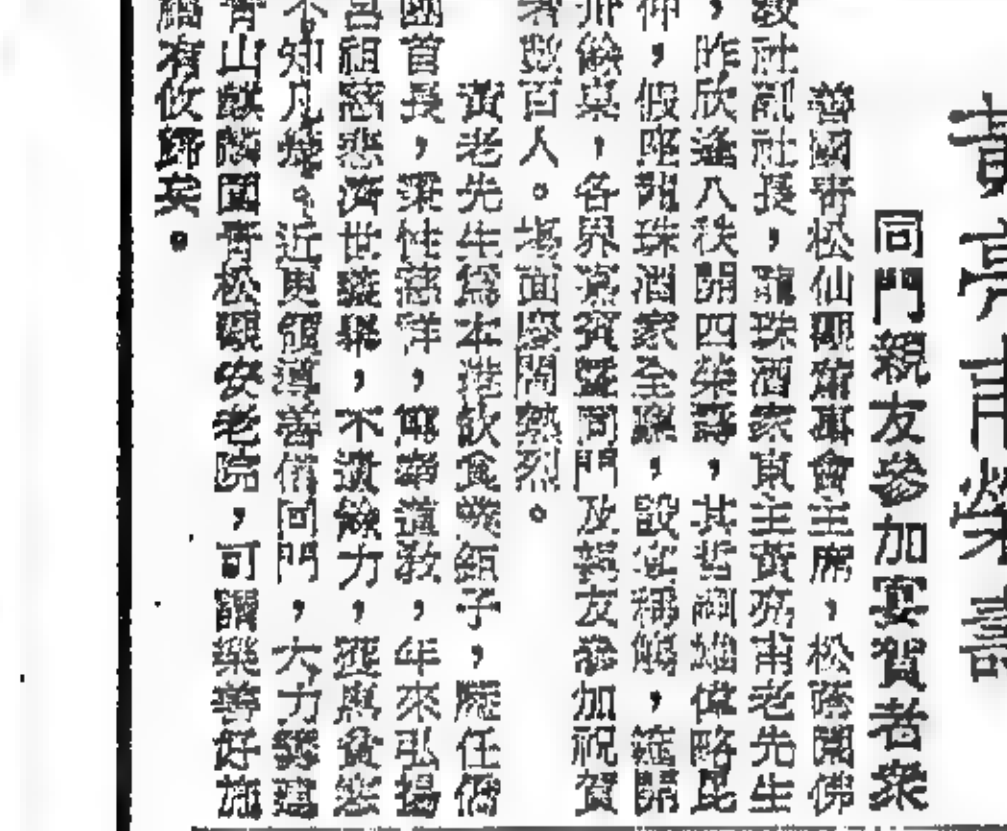 黃亮甫榮壽
同門親友參加宴賀者衆
善國青松仙觀董事會主席，松蔭園佛
教社副社長，龍珠酒家東主黃亮甫老先生
，昨欣逢八秩開四榮壽，其哲嗣　偉略昆
仲，假座龍珠酒家全　，設宴稱觴，筵開
卅餘桌，各界嘉賓暨同門及親友參加祝賀
者數百人。場面廖鬧熱烈。
黃老先生爲本港飲食業鉅子，歷任僑
團首長，秉性慈祥，篤奉道教，年來弘揚
呂祖慈悲濟世義舉，不遺餘力，澤惠貧
不知凡幾。近更領導善信同門，大力籌建
青山麒麟圍青松觀安老院，可謂樂善好施
福有攸歸矣。